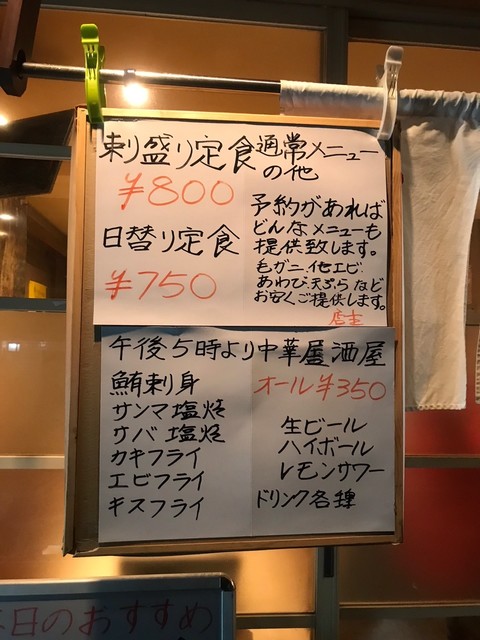 刺り盛り定食
¥800
日替り定食
¥750
通常メニュー
の他
予約があれば
どんなメニューも
提供致します。
毛ガニ、他エビ、
あわび、天ぷらなど
お安くご提供します。
店主
午後5時より中華居酒屋
鮪刺り身
サンマ塩焼
サバ塩焼
カキフライ
エビフライ
キスフライ
オール¥350
生ビール
ハイボール
レモンサワー
ドリンク各種
本日のおすすめ